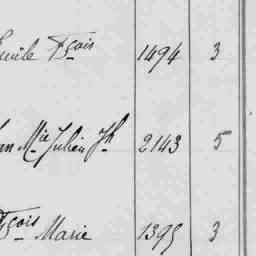 Emile Fçois 1494 3
Mie Julien Jh 2143 5
Fçois Marie 1395 3